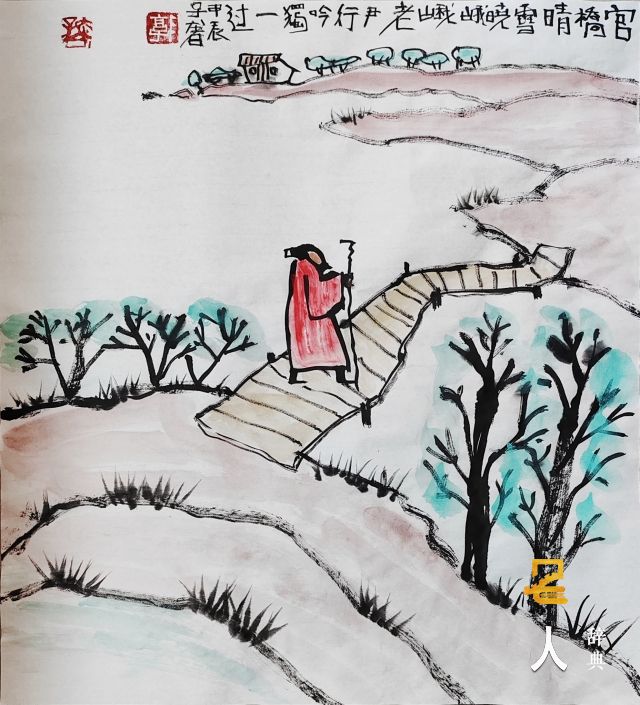 宫橋晴雪曉峨峨老尹行吟獨一过
甲辰
子
名人
辞典